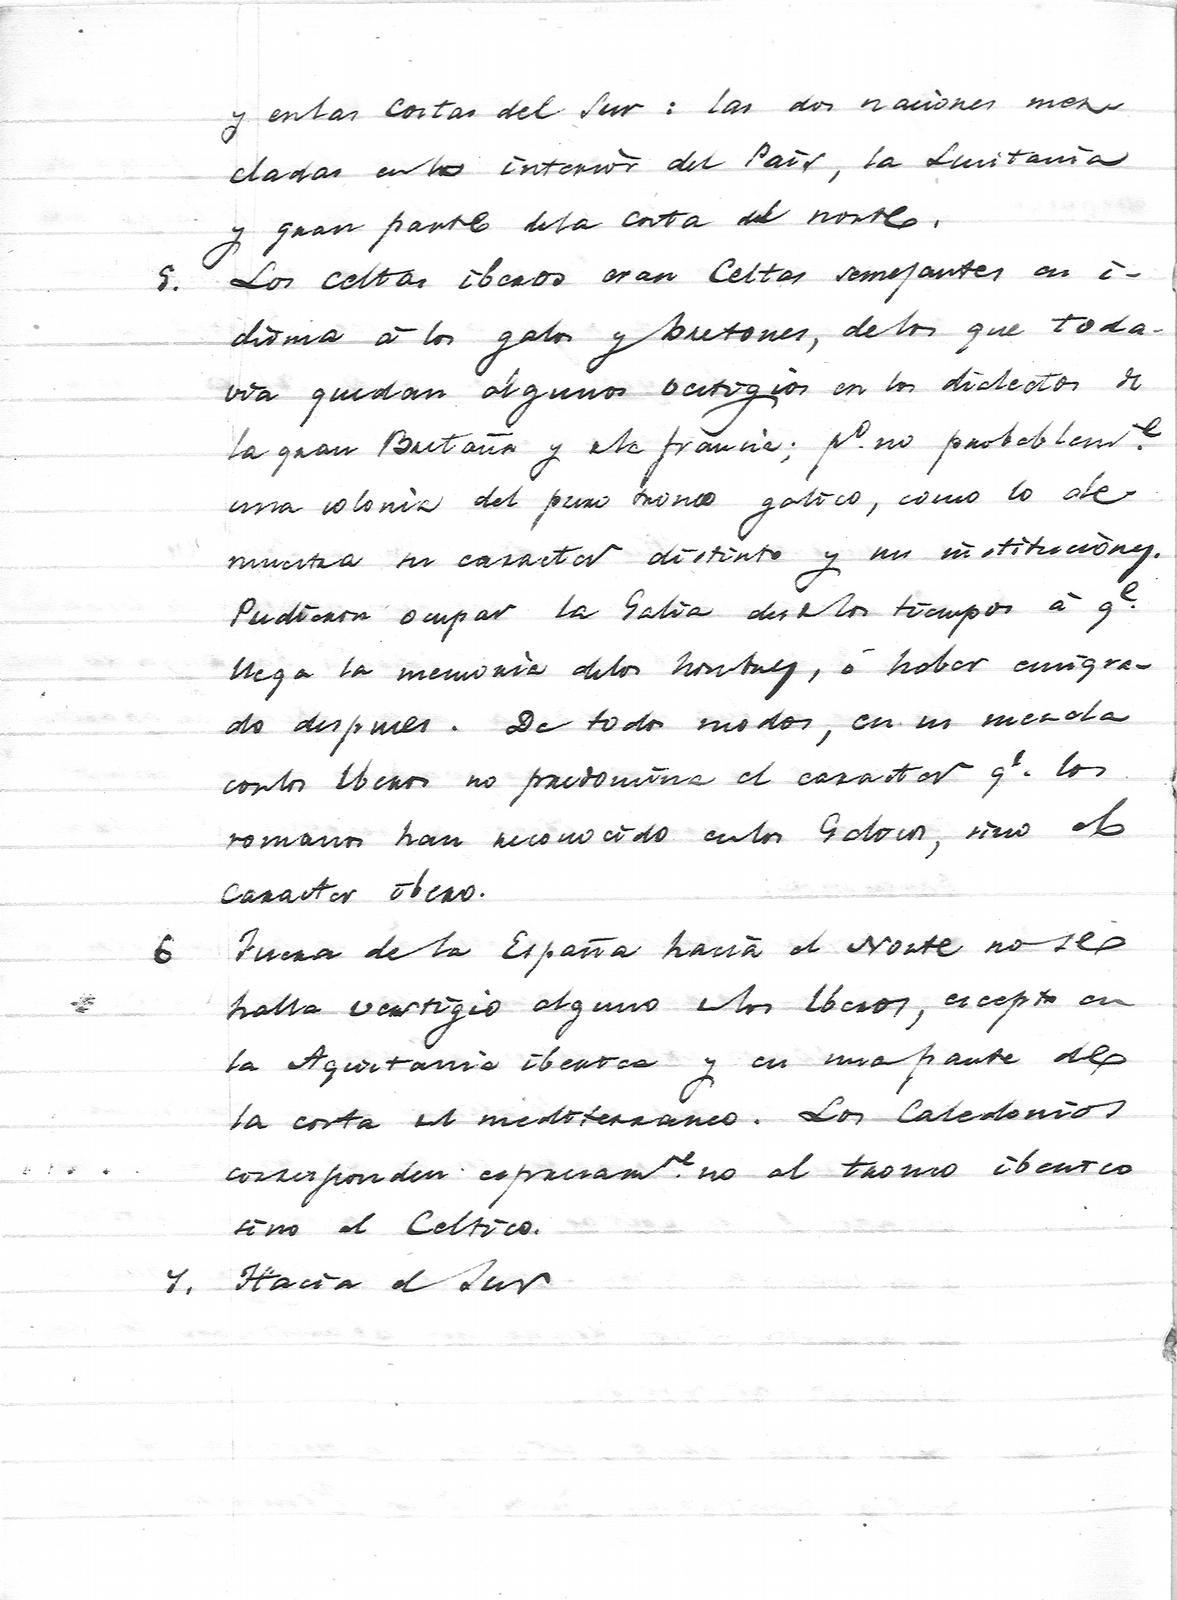 y enlas costas del Sur : las dos naciones mez
cladas en lo interiòr del Païs, la Lusitania
y gran parte dela costa del norte.
5. Los celtas iberos eran Celtas semejantes en i-
dioma à los galos y bretones, delos que toda-
via quedan algunos vestigios en los dialectos de
la gran Bretaña y dela francia; po. no probablemte.
una colonia del puro tronco galico, como lo de-
muestra su caracter distinto y sus instituciones.
Pudieron ocupar la Galia desdelos tiempos à qe.
llega la memoria delos hombres, ó haber emigra-
do despues. De todos modos, en su mezcla
conlos Iberos no predomina el caracter qe. los
romanos han reconocido enlos Galicos, sino el
caracter ibero.
6 Fuera de la España hacia el Norte no se
halla vestigio alguno delos Iberos, escepto en
la Aquitania iberica y en una parte de
la costa del mediterraneo. Los Caledonios
corresponden espresamte. no al tronco iberico
sino al Celtico.
7. Hacia el Sur